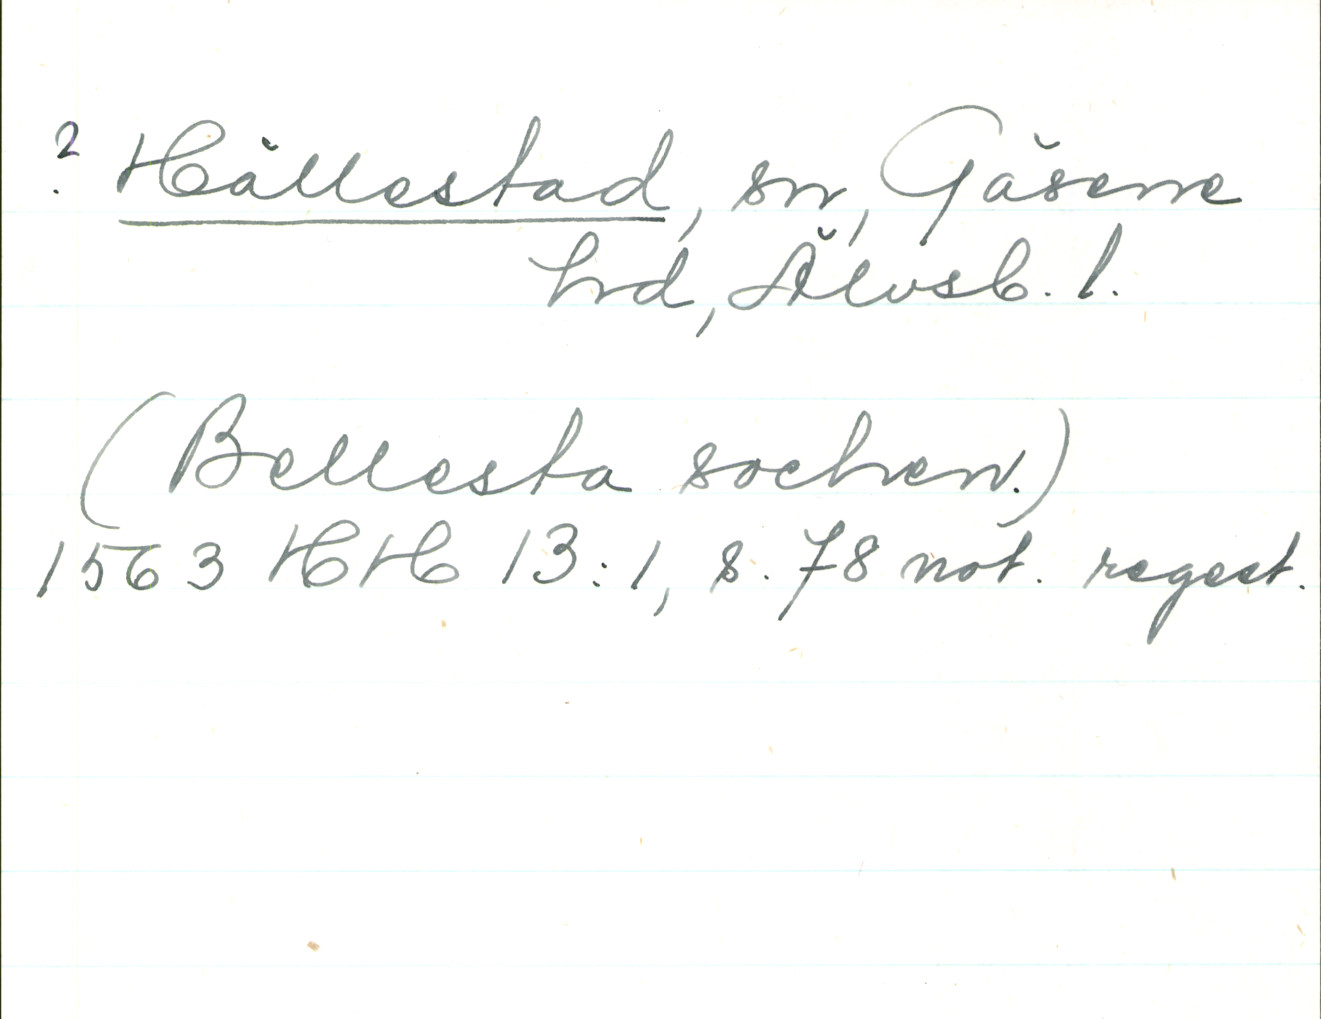 ? Hällestad, sn, Gäsene
hrd, Älvsb. l.
(Bellesta sochen.)
1563 HH 13:1, s. 78 not. regest.